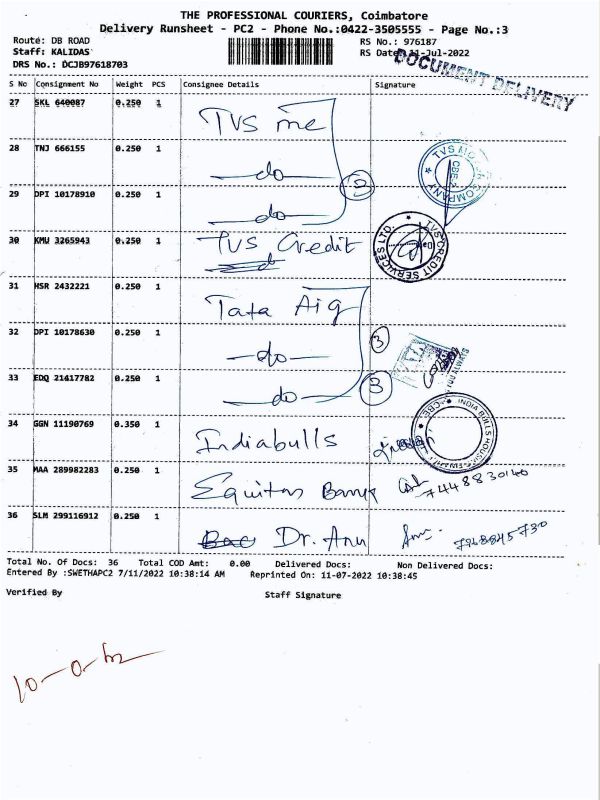 THE PROFESSIONAL COURIERS, Coimbatore
Delivery Runsheet - PC2 - Phone No.:0422-3505555 - Page No.:3
Route: DB ROAD
RS No.: 976187
Staff: KALIDAS
RS Date 11-Jul-2022
DRS No.: DCJB97618703
DOCUMENT DELIVERY
S No Consignment No Weight PCS Consignee Details Signature
27 SKL 640087 0.250 1 TVS me
28 TNJ 666155 0.250 1 —do—
29 DPI 10178910 0.250 1 —do—
30 KMU 3265943 0.250 1 TVS Credit
TVS CREDIT SERVICES LTD.
31 HSR 2432221 0.250 1 Tata Aig
32 DPI 10178630 0.250 1 —do— 3
33 EDQ 21417782 0.250 1 —do— 3
34 GGN 11190769 0.350 1 Indiabulls
INDIA BULLS HOUS
CBE
35 MAA 289982283 0.250 1 Equitas Bank 7448830140
36 SLM 299116912 0.250 1 Dr. Anu
Total No. Of Docs: 36 Total COD Amt: 0.00 Delivered Docs: Non Delivered Docs:
Entered By :SWETHAPC2 7/11/2022 10:38:14 AM Reprinted On: 11-07-2022 10:38:45
Verified By Staff Signature